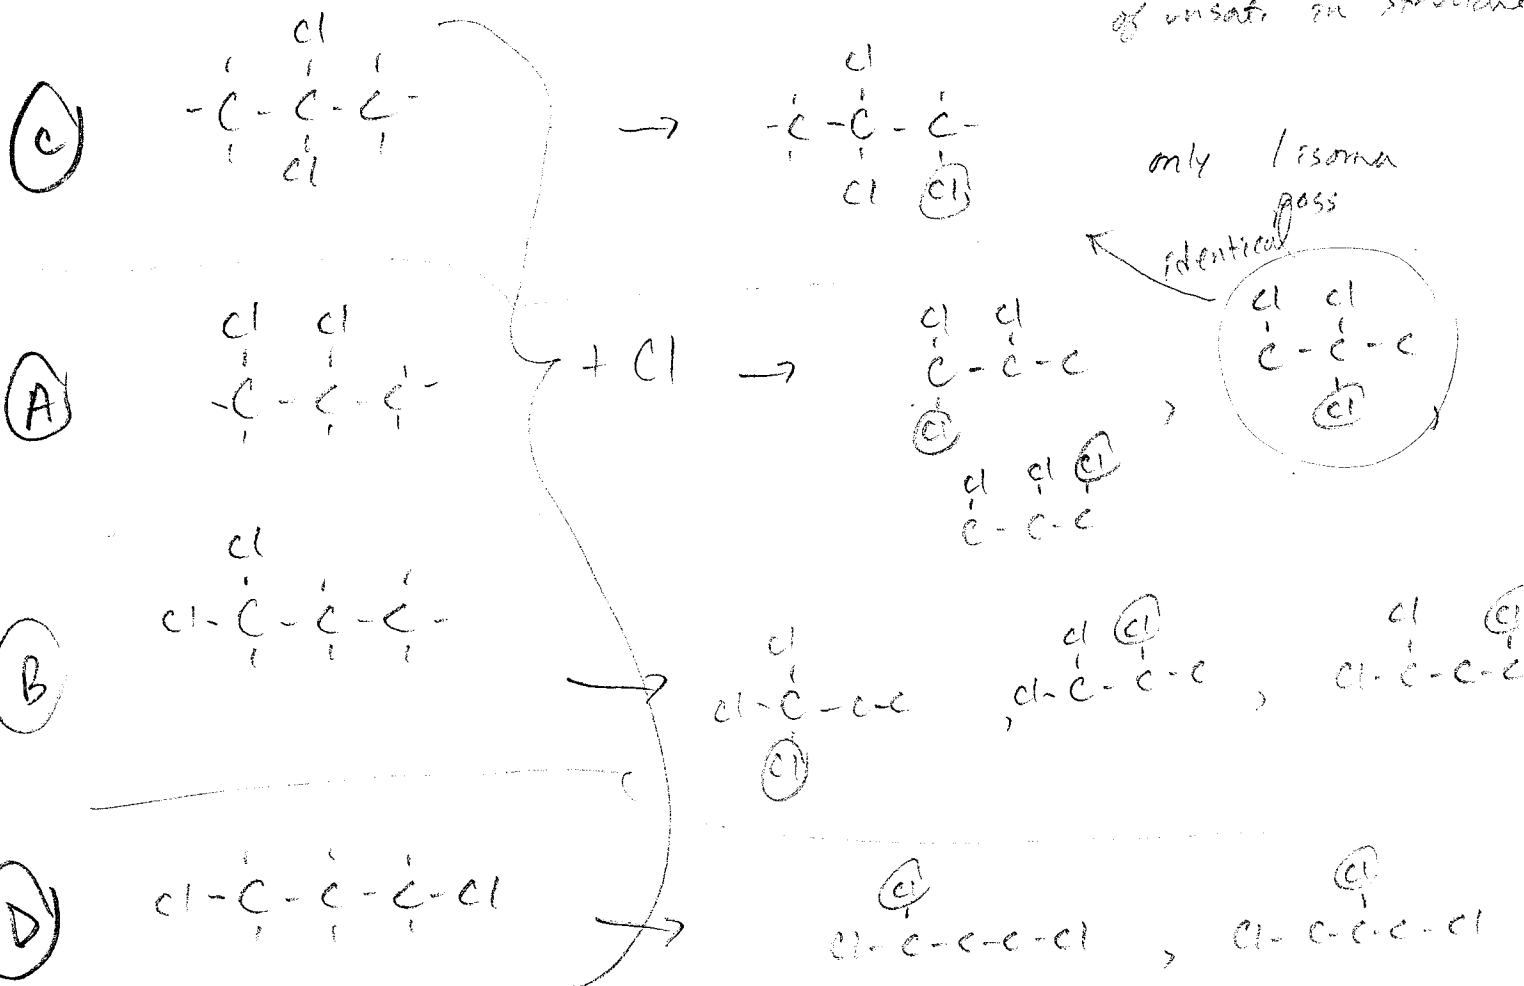 of unsat. in structure
Cl
- C - C - C -
Cl
C
→
Cl
- C - C - C -
Cl Cl
only 1 isomer
poss
identical
Cl Cl
- C - C - C -
A
+ Cl →
Cl Cl
C - C - C
Cl
,
Cl Cl
C - C - C
Cl
,
Cl Cl Cl
C - C - C
Cl
Cl - C - C - C -
B
→
Cl
Cl - C - C - C
Cl
,
Cl Cl
Cl - C - C - C
,
Cl Cl
Cl - C - C - C
D
Cl - C - C - C - Cl
→
Cl
Cl - C - C - C - Cl
,
Cl
Cl - C - C - C - Cl